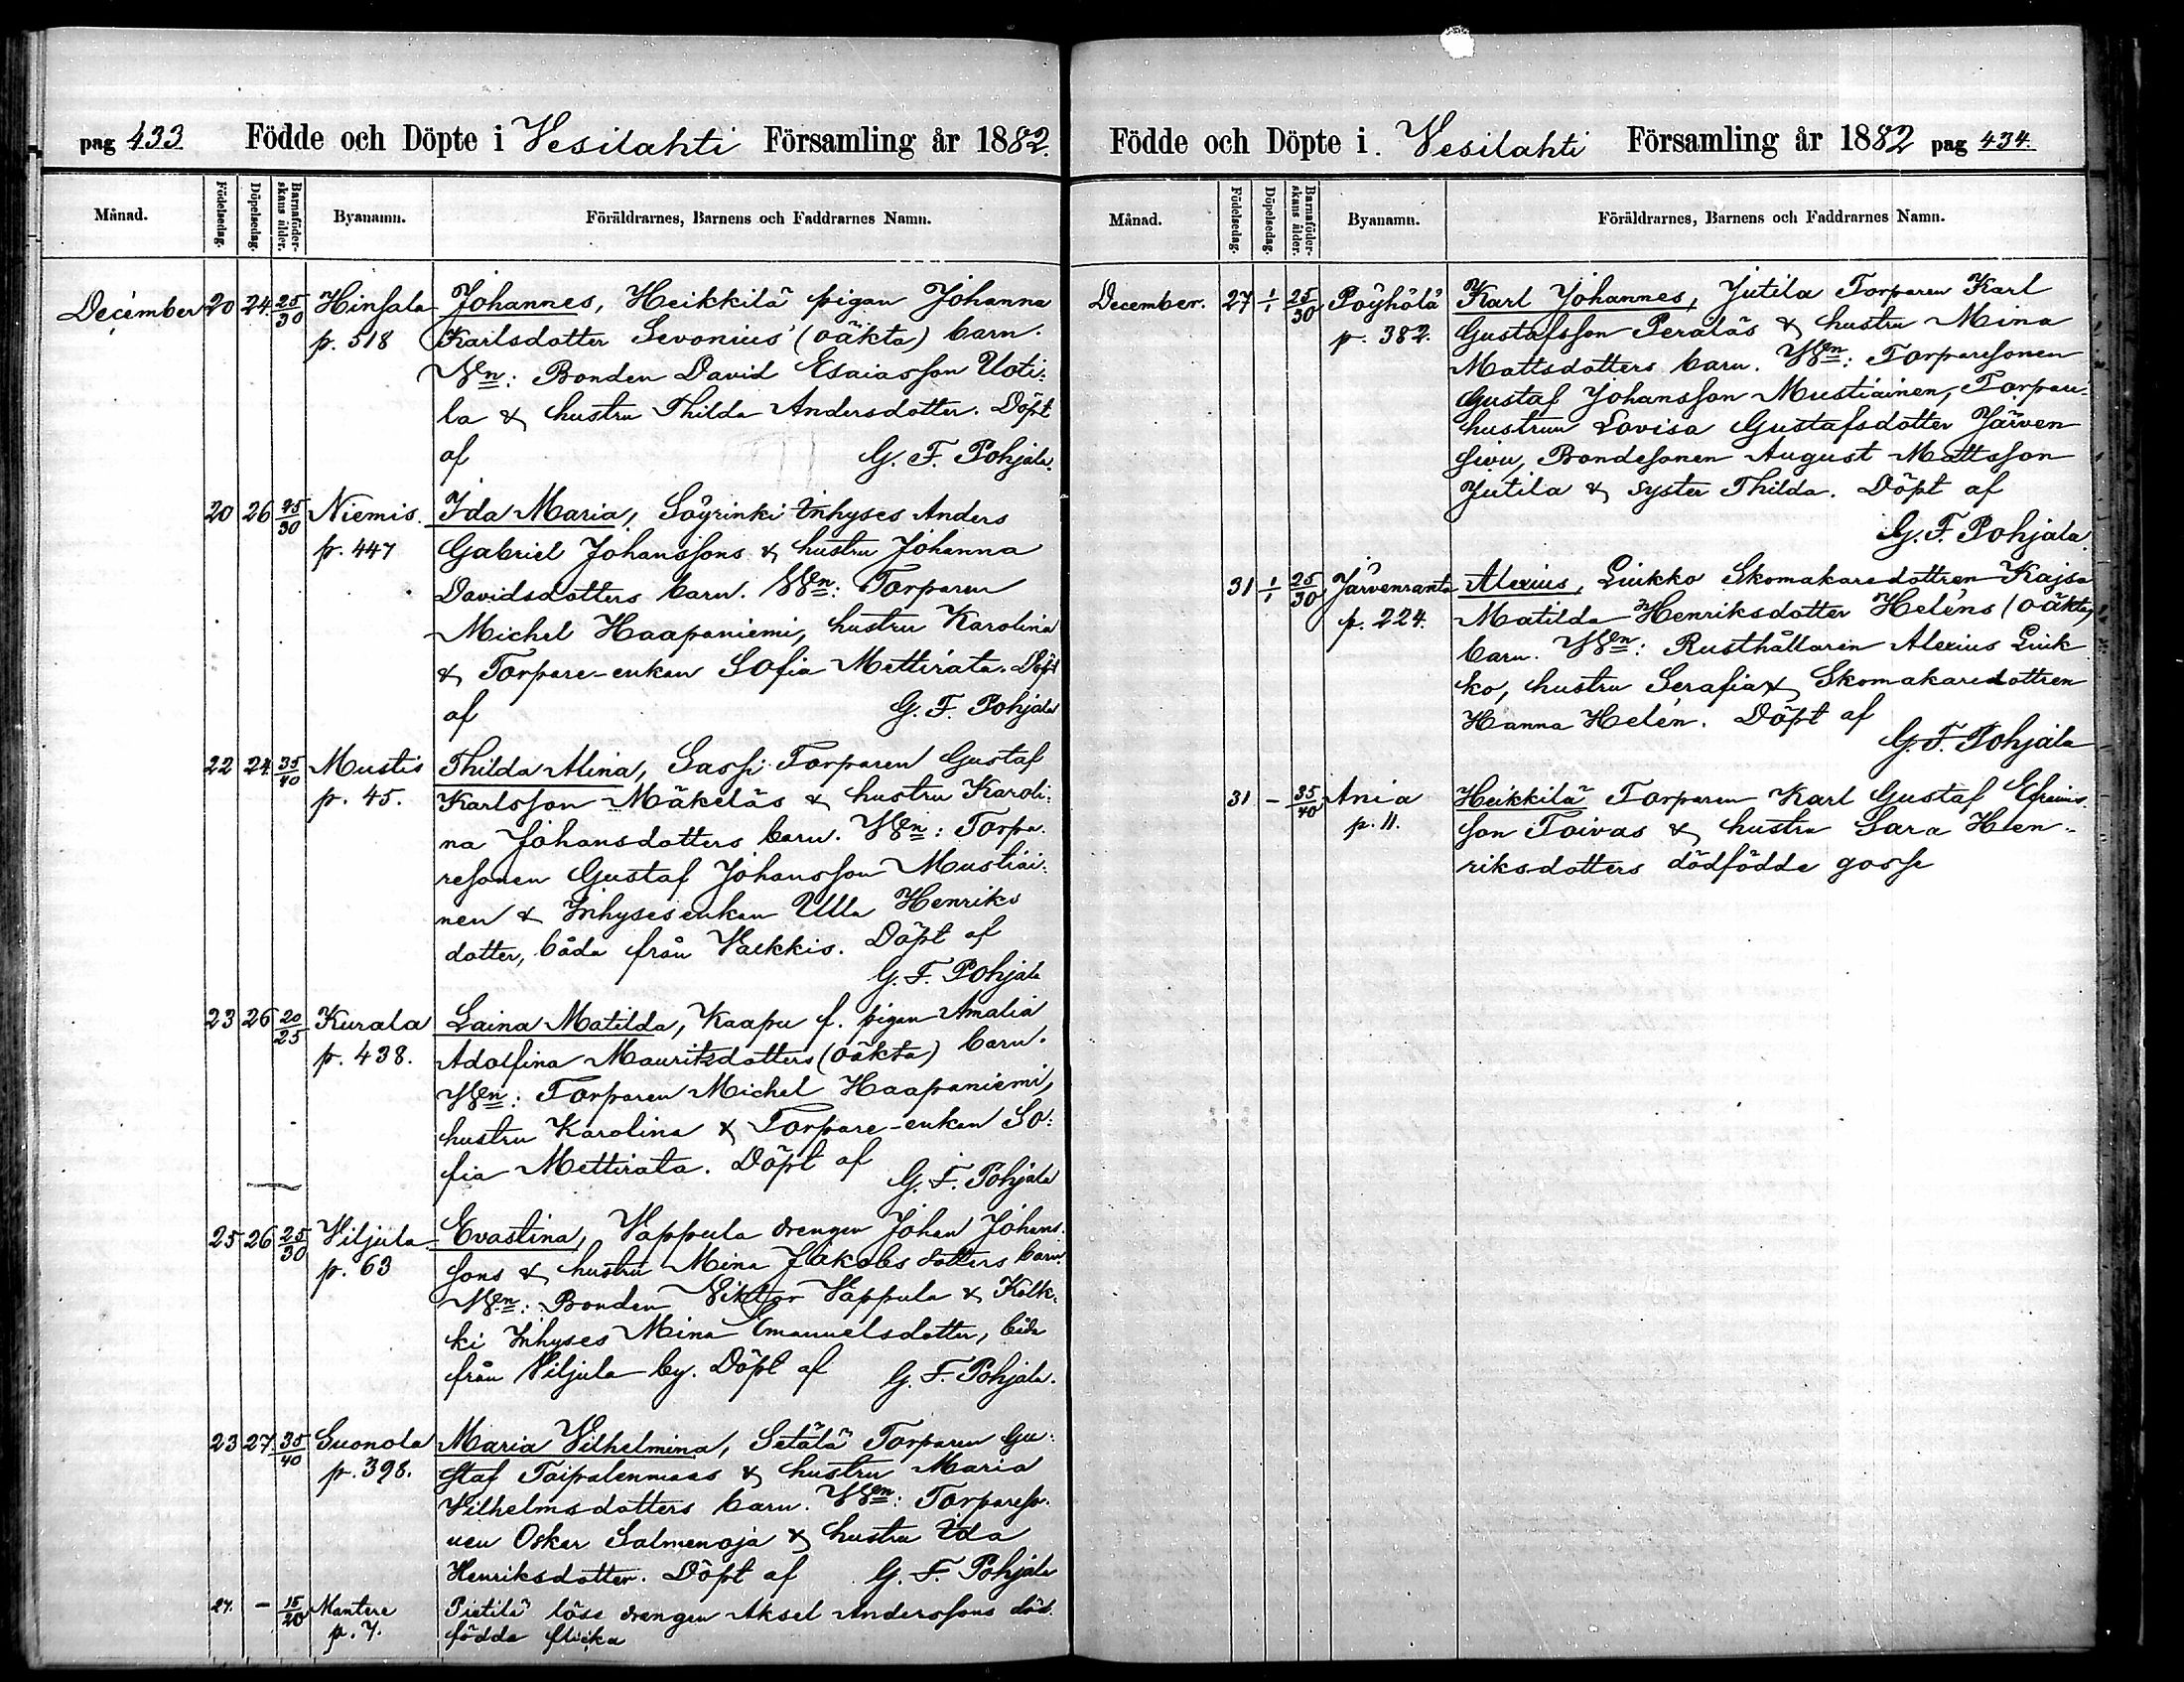 pag 433. Födde och Döpte i Vesilahti Församling år 1882.
Månad. Födelsedag. Döpelsedag. Barnaföder-skans ålder. Byanamn. Föräldrarnes, Barnens och Faddrarnes Namn.
December 20 24 25/30 Hinsala Johannes, Heikkilä pigan Johanna
p. 518 Karlsdotter Sevonius' (oäkta) barn.
Wn: Bonden David Esaiasson Uoti-
la & hustru Thilda Andersdotter. Döpt
af G. F. Pohjala.
20 26 25/30 Niemis. Ida Maria, Söyrinki Inhyses Anders
p. 447 Gabriel Johanssons & hustru Johanna
Davidsdotters barn. Wn: Torparen
Michel Haapaniemi, hustru Karolina
& Torpare-enkan Sofia Mettirata. Döpt
af G. F. Pohjala
22 24 35/40 Mustis Thilda Alina, Sassi Torparen Gustaf
p. 45. Karlsson Mäkeläs & hustru Karoli-
na Johansdotters barn. Wn: Torpa-
resonen Gustaf Johansson Mustiai-
nen & Inhysesenkan Ulla Henriks
dotter, båda från Vakkis. Döpt af
G. F. Pohjala
23 26 20/25 Kurala Laina Matilda, Kaapu f. pigan Amalia
p. 438. Adolfina Mauritzdotters (oäkta) barn.
Wn: Torparen Michel Haapaniemi,
hustru Karolina & Torpare-enkan So-
fia Mettirata. Döpt af G. F. Pohjala
25 26 25/30 Viljula Evastina, Vappula drengen Johan Johans-
p. 63 sons & hustru Mina Jakobsdotters barn.
Wn: Bonden Viktor Vappula & Kolk-
ki Inhyses Mina Emanuelsdotter, båda
från Viljula by. Döpt af G. F. Pohjala.
23 27 35/40 Suonola Maria Vilhelmina, Setälä Torparen Gu-
p. 398. staf Taipalenmaas & hustru Maria
Vilhelmsdotters barn. Wn: Torpareso-
nen Oskar Salmenoja & hustru Ida
Henriksdotter. Döpt af G. F. Pohjala
27. - 15/20 Mantere Pietilä löse drengen Aksel Anderssons död-
p. 7. födda flicka
Födde och Döpte i Vesilahti Församling år 1882 pag 434.
Månad. Födelsedag. Döpelsedag. Barnaföder-skans ålder. Byanamn. Föräldrarnes, Barnens och Faddrarnes Namn.
December. 27 1/1 25/30 Pöyhölä Karl Johannes, Jutila Torparen Karl
p. 382. Gustafsson Peraläs & hustru Mina
Mattsdotters barn. Wn: Torparesonen
Gustaf Johansson Mustiainen, Torpare-
hustrun Lovisa Gustafsdotter Järven
sivu, Bondesonen August Mattsson
Jutila & syster Thilda. Döpt af
G. F. Pohjala.
31 1/1 25/30 Järvenranta Alexius, Liukko Skomakaredottren Kajsa
p. 224. Matilda Henriksdotter Heléns (oäkta)
barn. Wn: Rusthållaren Alexius Liuk
ko, hustru Serafia & Skomakaredottren
Hanna Helén. Döpt af
G. F. Pohjala
31 - 35/40 Ania Heikkilä Torparen Karl Gustaf Efraims-
p. 11. son Toivas & hustru Sara Hen-
riksdotters dödfödde gosse